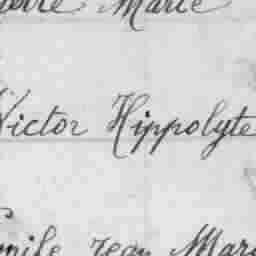 Pierre Marie
Victor Hippolyte
Emile Jean Marie